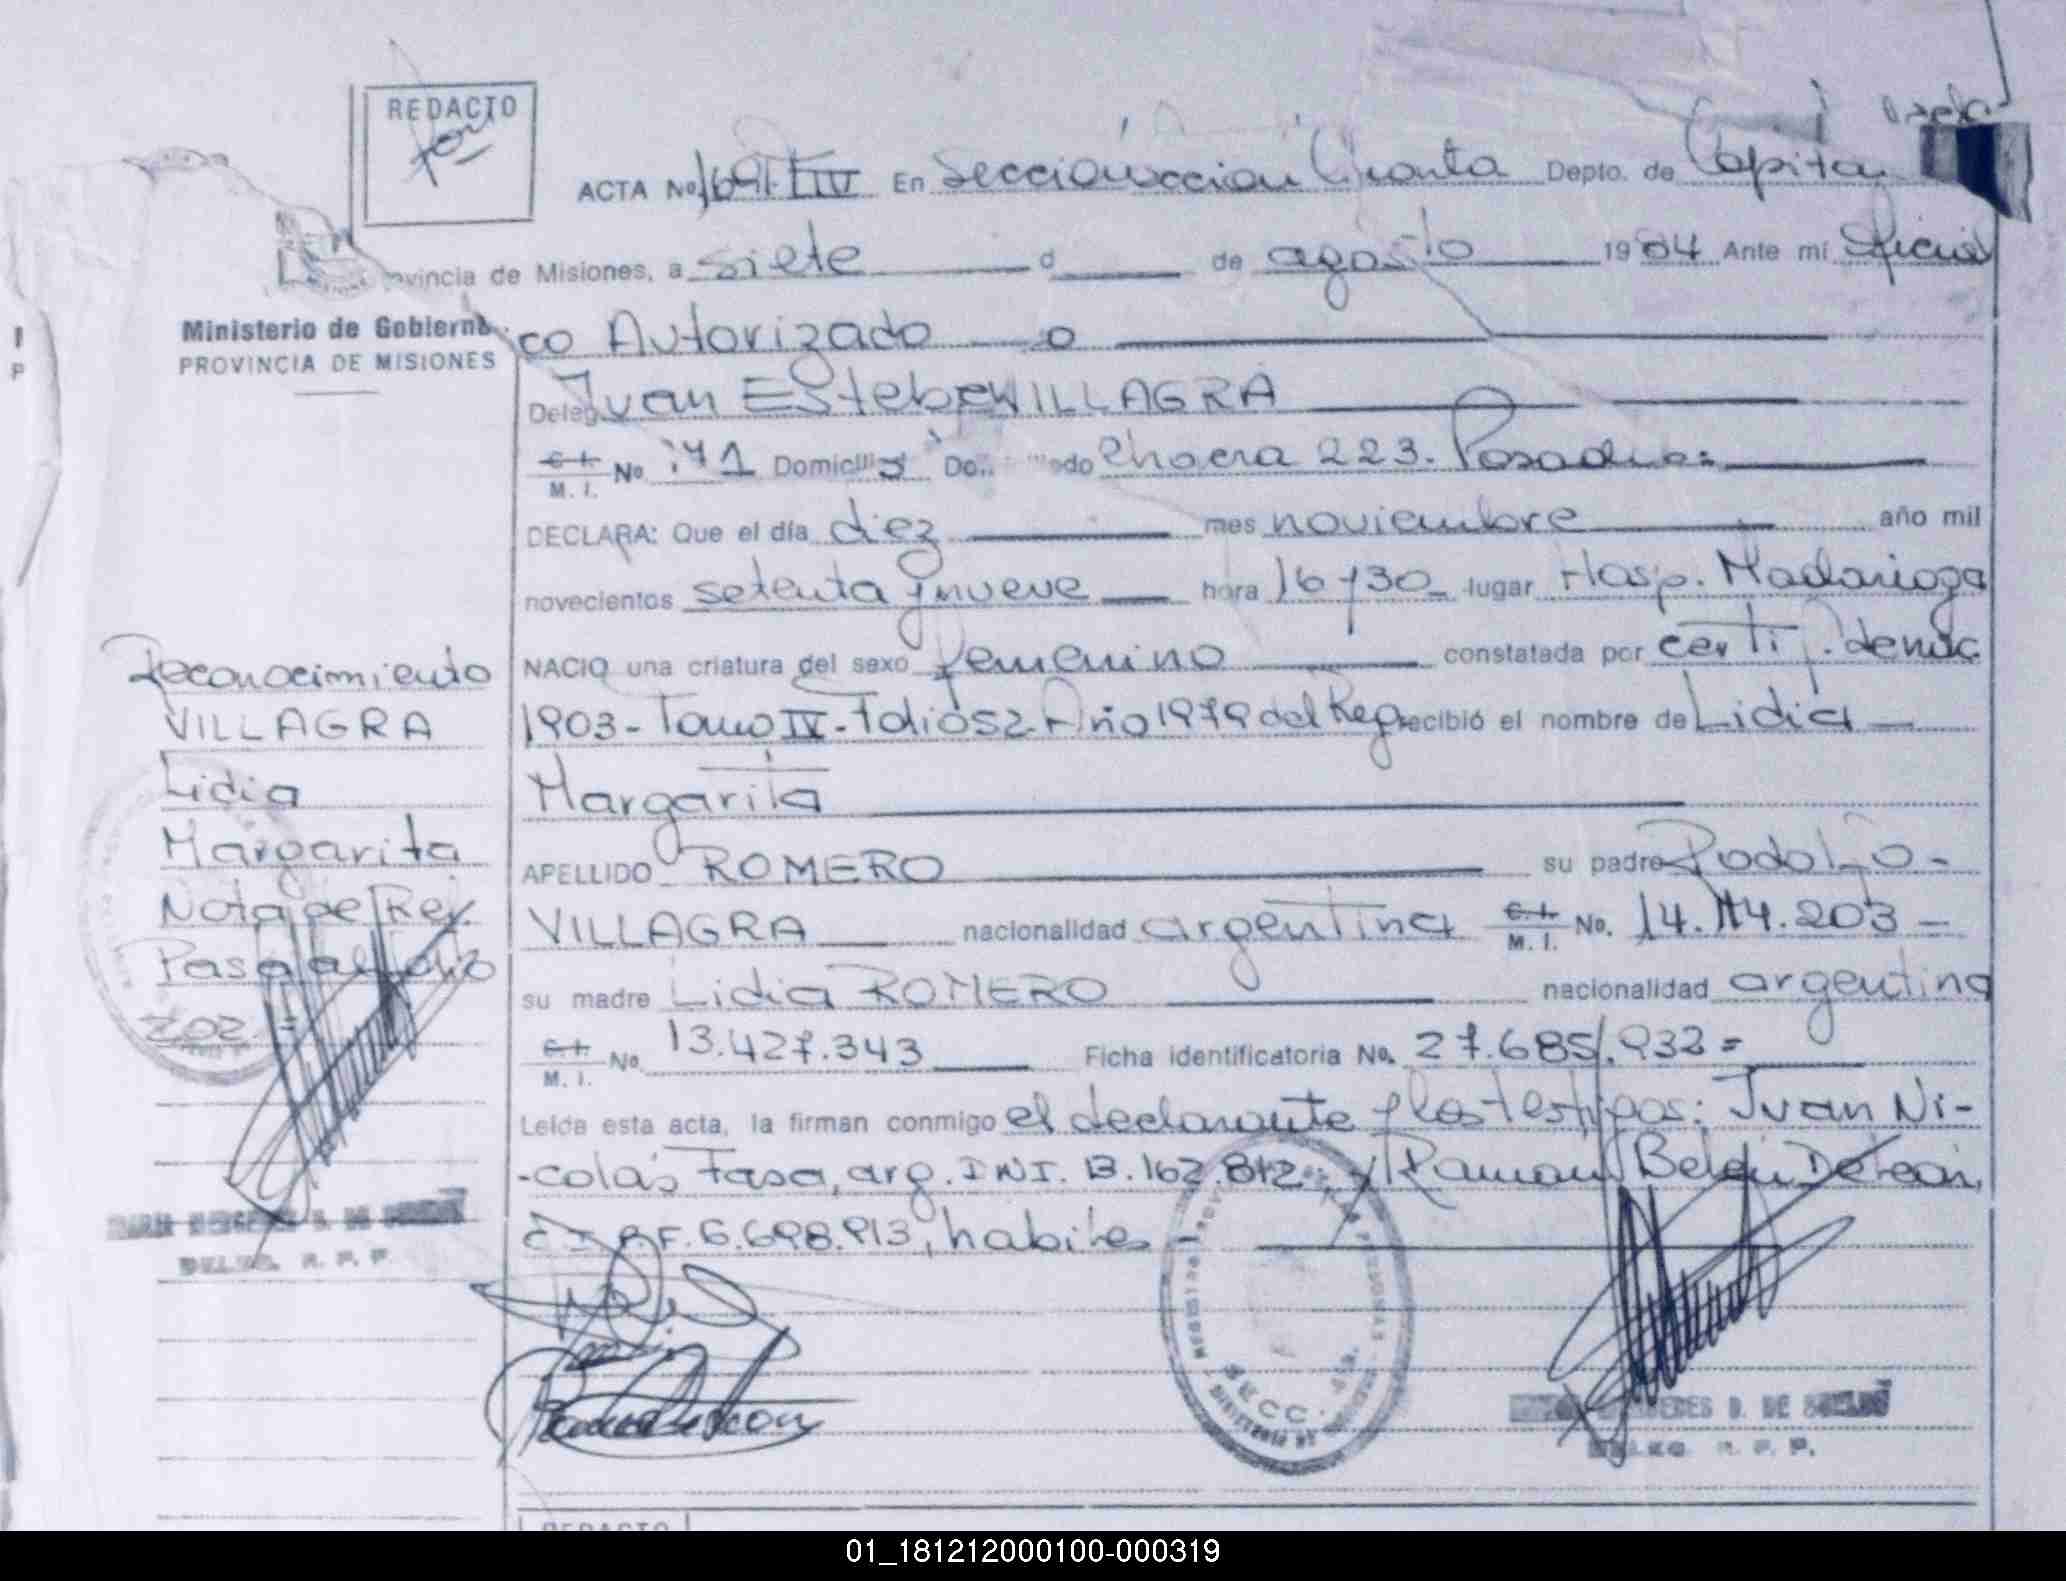 REDACTO
ACTA No En Sección Cuarta Depto. de Capital
Provincia de Misiones, a siete d de agosto 1984 Ante mí Oficial
Ministerio de Gobierno
PROVINCIA DE MISIONES
co Autorizado o
Deleg Juan Esteban VILLAGRA
C.I. M.I. No. Domicilio Chacra 223. Posadas
DECLARA: Que el día diez mes noviembre año mil
novecientos setenta y nueve hora 16 y 30 lugar Hosp. Madariaga
NACIO una criatura del sexo femenino constatada por certif. de nac
1903 - Tomo IV - Folio 52 - Año 1979 del Reg recibió el nombre de Lidia
Margarita
APELLIDO ROMERO su padre Rodolfo -
VILLAGRA nacionalidad argentina C.I. M.I. No. 14.114.203 -
su madre Lidia ROMERO nacionalidad argentina
C.I. M.I. No. 13.427.343 Ficha identificatoria No. 27.685.932 =
Leída esta acta, la firman conmigo el declarante y los testigos: Juan Ni-
-colás Fasa, arg. DNI. 13.162.812 y Ramon Belen Deleon,
C I P.F. 6.698.913, habiles
Reconocimiento
VILLAGRA
Lidia
Margarita
Nota de Ref.
Pasa al folio
202. =
DELEG. R. P. P.
SECC. 4ta.
D. DE
DELEG. R. P. P.
REDACTO
01_181212000100-000319